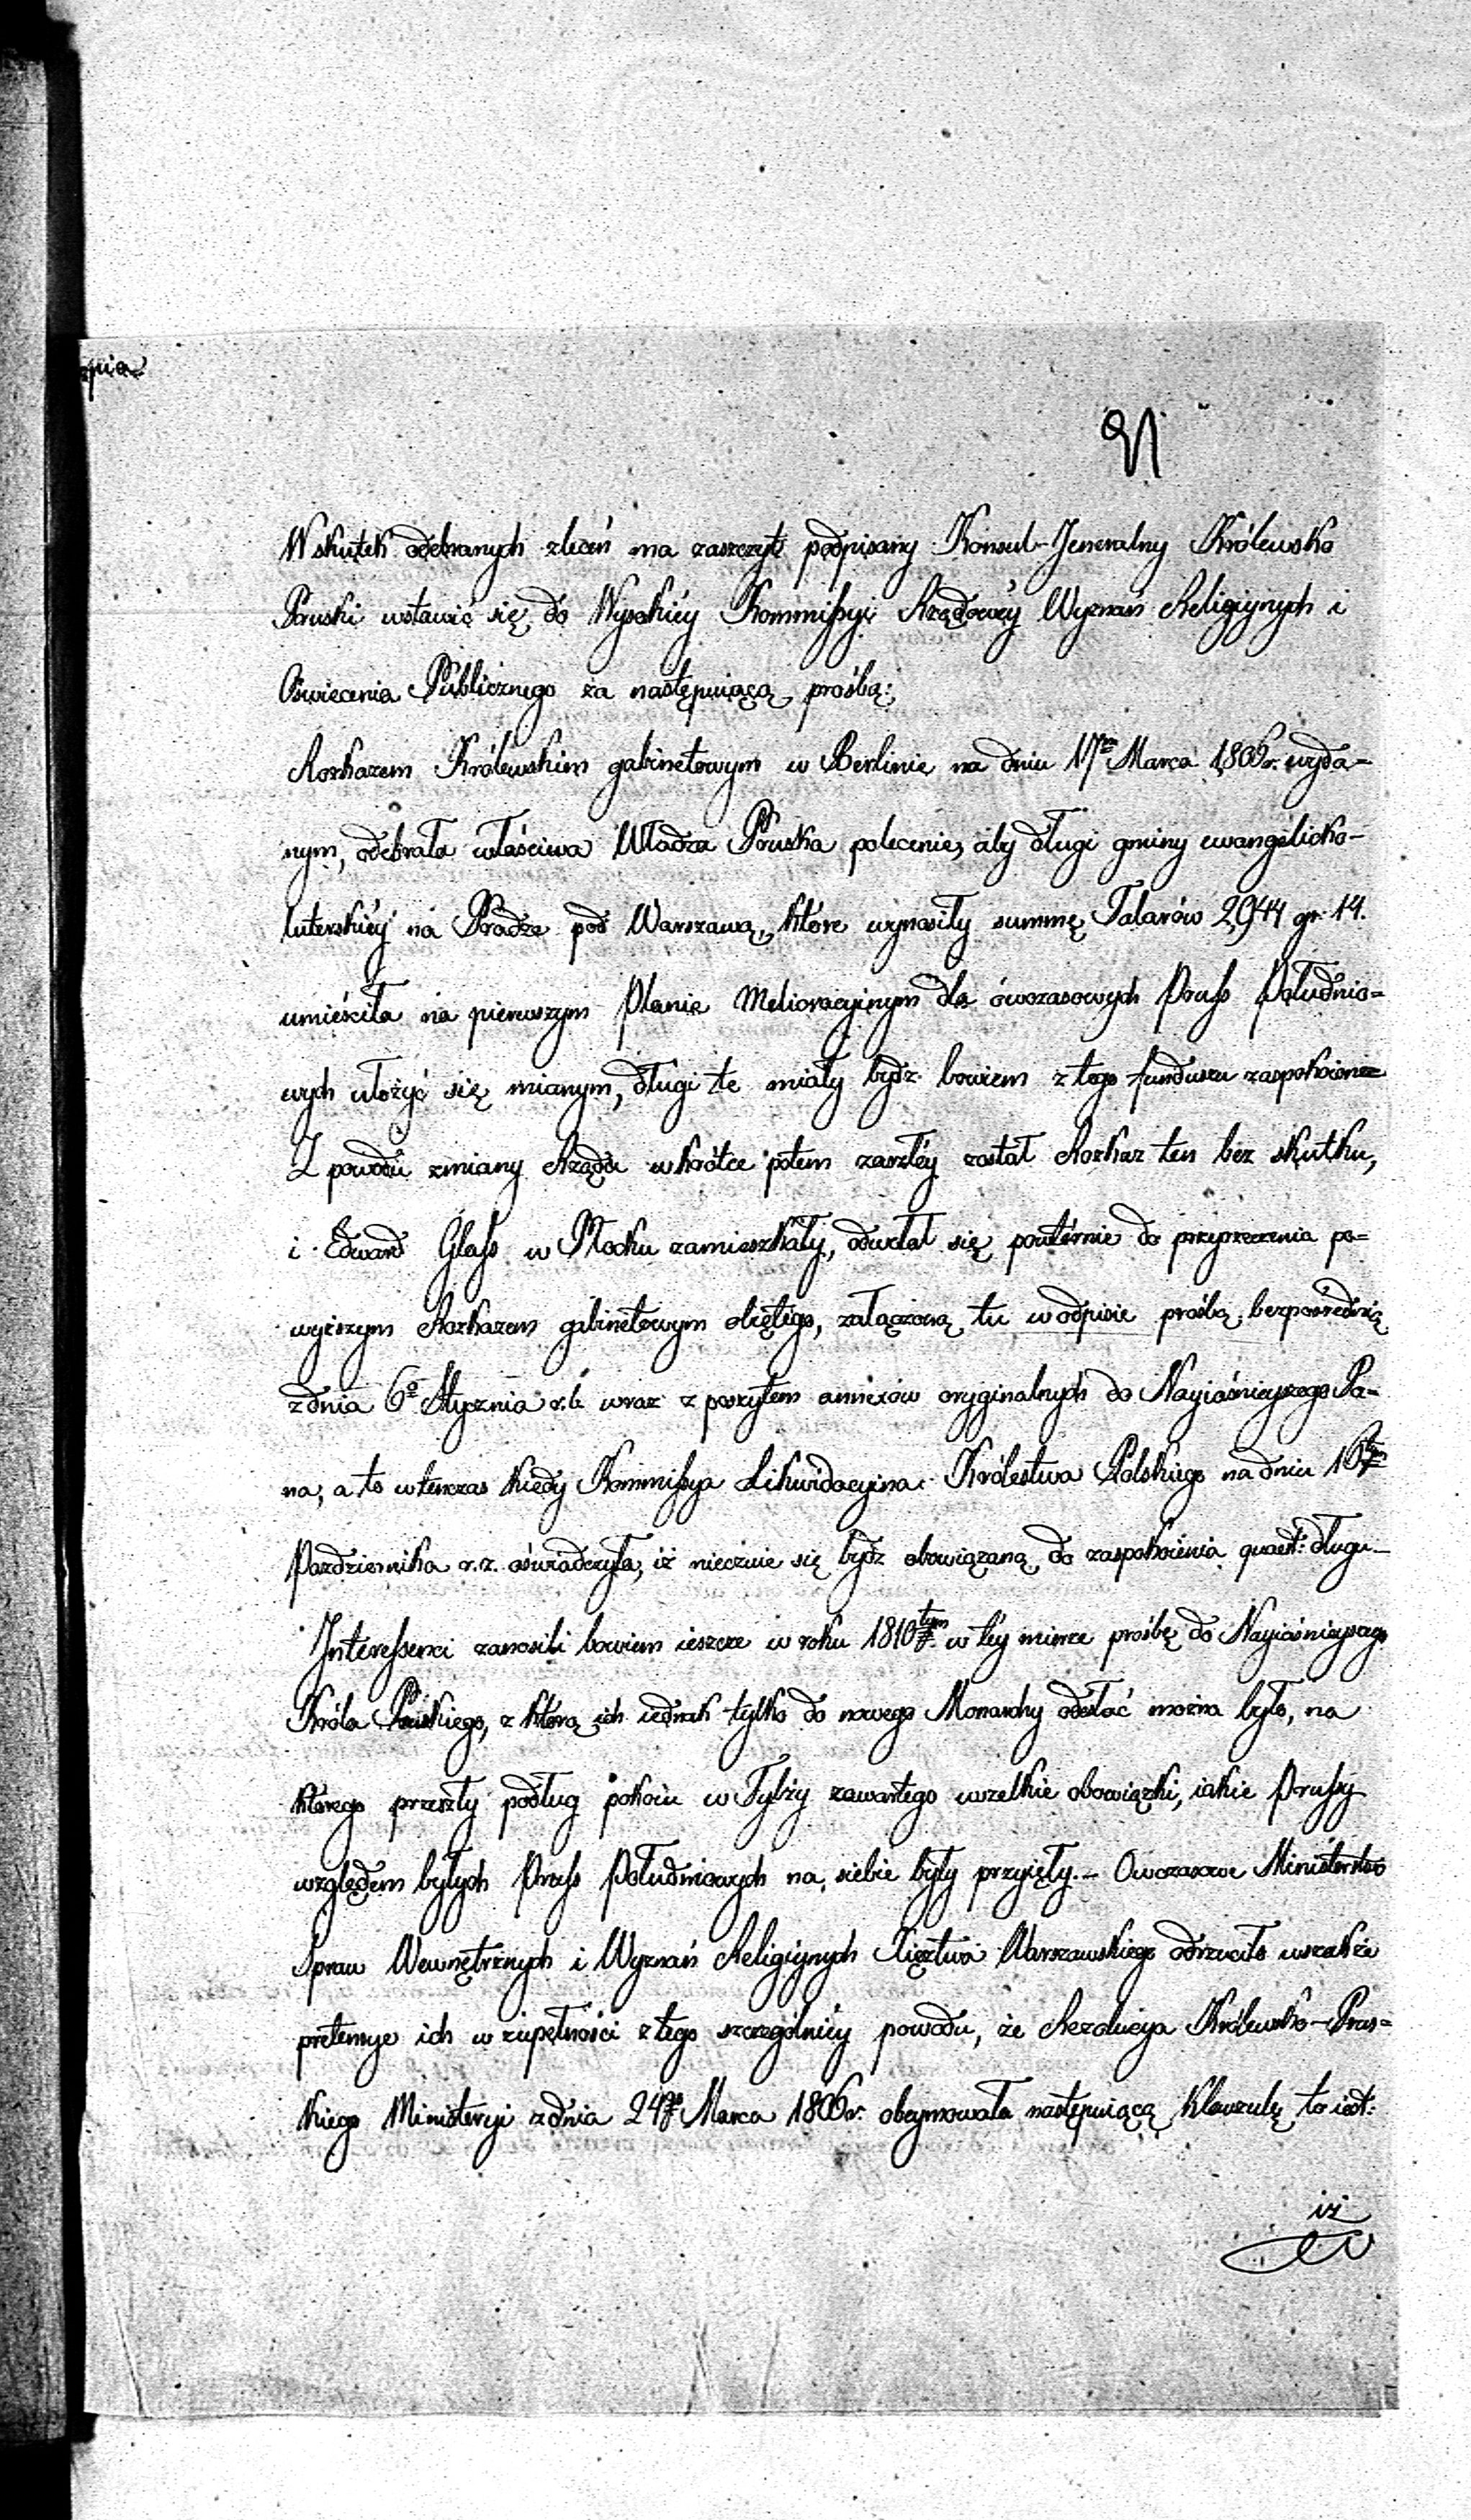 91
W skutek odebranych zleceń ma zaszczyt podpisany Konsul-Jeneralny Królewsko
Pruski wstawić się do Wysokiéy Kommissyi Rządowéy Wyznań Religiynych i
Oświecenia Publicznego za następuiącą prośbą:
Rozkazem Królewskim gabinetowym w Berlinie na dniu 17m Marca 1806r. wyda-
nym, odebrała właściwa Władza Pruska polecenie, aby długi gminy ewangelicko-
luterskiéy na Pradze pod Warszawą, które wynosiły summę Talarów 2,944 gr. 14.
umieściła na pierwszym Planie Melioracyinym dla ówczasowych Pruss Południo=
wych ułożyć się mianym, długi te miały bydź bowiem z tego funduszu zaspokoione
Z powodu zmiany Rządu wkrótce potem zaszłéy został Rozkaz ten bez skutku,
i Edward Glass w Płocku zamieszkały, odwołał się powtórnie do przyrzeczenia po=
wyższym Rozkazem gabinetowym obiętego, załączoną tu w odpisie prośbą bezpośrednią
z dnia 6o Stycznia r.b. wraz z poszytem annexów oryginalnych do Nayiaśnieyszego Pa-
na, a to wtenczas kiedy Kommissya Likwidacyina Królestwa Polskiego na dniu 16tym
Pazdziernika r.z. oświadczyła, iż nieczuie się bydź obowiązaną do zaspokoienia quaest: długu-
Interessenci zanosili bowiem ieszcze w roku 1810tym w téy mierze prośbę do Nayiaśnieyszego
Króla Pruskiego, z którą ich iednak tylko do nowego Monarchy odesłać można było, na
którego przeszły podług pokoiu w Tylży zawartego wszelkie obowiązki, iakie Prussy
względem byłych Pruss Południowych na siebie były przyięły.- Owczasowe Ministerstwo
Spraw Wewnętrznych i Wyznań Religiynych Xięztwa Warszawskiego odrzuciło wszakże
pretensye ich w zupełności z tego szczególniéy powodu, że Rezolucya Królewsko-Prus=
kiego Ministeryi z dnia 24go Marca 1806r. obeymowała następuiącą klauzulę to iest:
iż